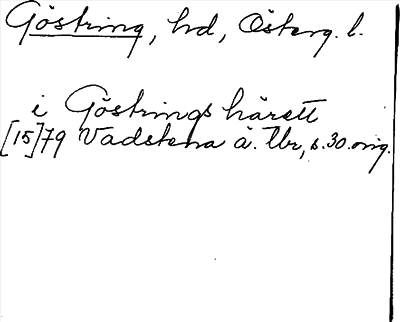 Göstring, hd, Österg. l.
i Göstrings härett
[15]79 Vadstena ä. tbr, s. 30. orig.